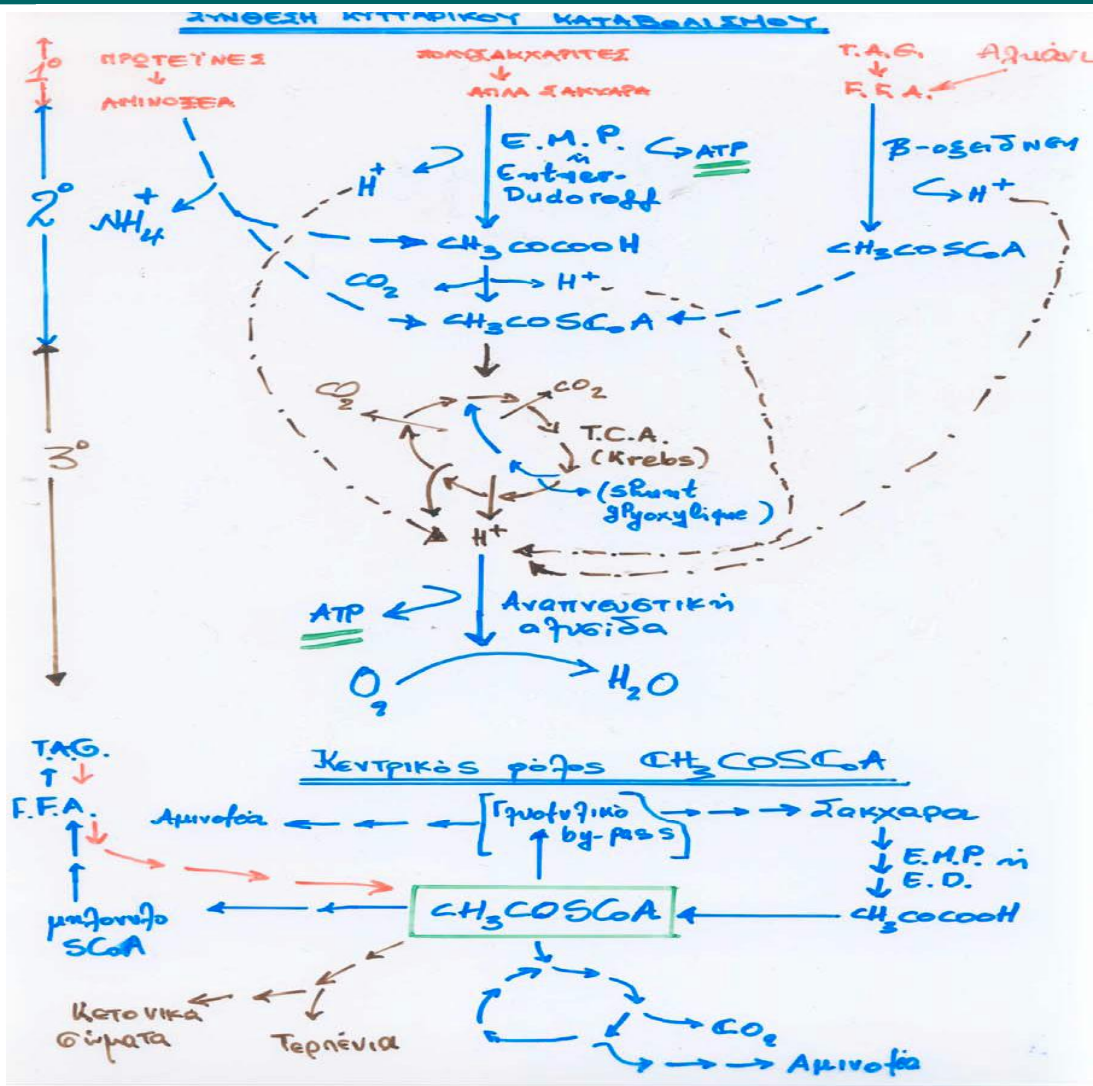 ΣΥΝΘΕΣΗ ΚΥΤΤΑΡΙΚΟΥ ΚΑΤΑΒΟΛΙΣΜΟΥ
1º
ΠΡΩΤΕΪΝΕΣ
ΠΟΛΥΣΑΚΧΑΡΙΤΕΣ
T.A.G.
Αλκάνι
ΑΜΙΝΟΞΕΑ
ΑΠΛΑ ΣΑΚΧΑΡΑ
F.F.A.
2º
NH₄⁺
H⁺
E.M.P.
ή
Entner-
Dudoroff
ATP
β-οξείδωση
H⁺
CH₃COCOOH
CH₃COSCoA
CO₂
H⁺
CH₃COSCoA
3º
CO₂
CO₂
T.C.A.
(Krebs)
(shunt
glyoxylique)
H⁺
ATP
Αναπνευστική
αλυσίδα
O₂
H₂O
Κεντρικός ρόλος CH₃COSCoA
T.A.G.
F.F.A.
Αμινοξέα
[Γλυοξυλικό
by-pass]
Σακχαρα
E.M.P. ή
E.D.
μηλονυλο
SCoA
CH₃COSCoA
CH₃COCOOH
Κετονικά
σώματα
Τερπένια
CO₂
Αμινοξέα